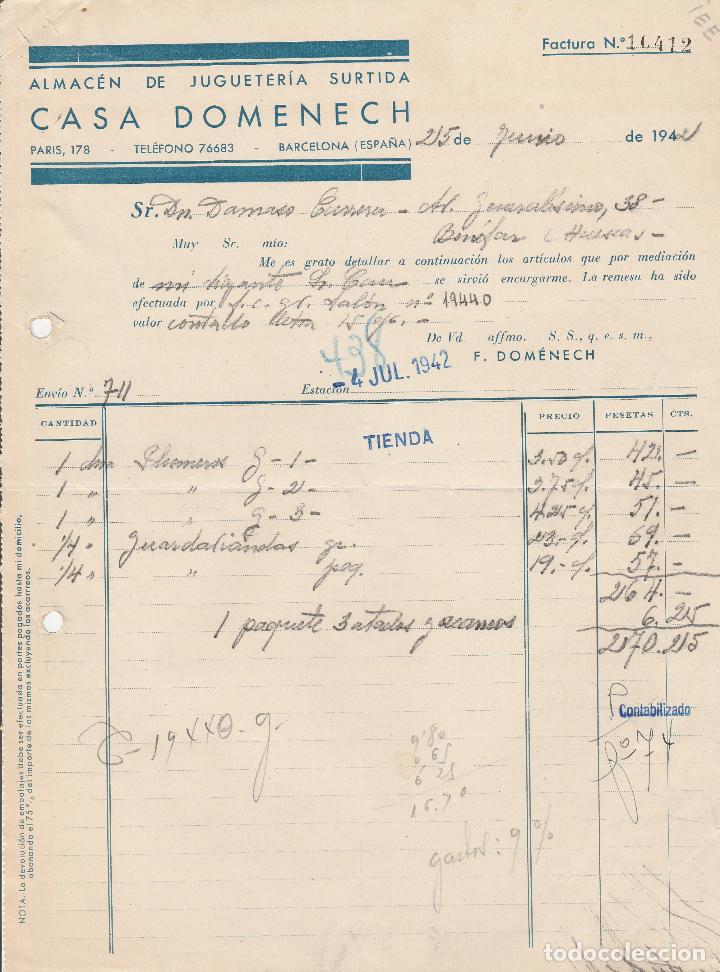 Factura N.º 11.412
ALMACÉN DE JUGUETERÍA SURTIDA
CASA DOMENECH
PARIS, 178 - TELÉFONO 76683 - BARCELONA (ESPAÑA)
25 de Junio de 1942
Sr. Dn. Damaso Carrera - Av. Generalísimo, 38 -
Binéfar (Huesca) -
Muy Sr. mío:
Me es grato detallar a continuación los artículos que por mediación
de mi Sr. se sirvió encargarme. La remesa ha sido
efectuada por f.c. nº 19440
valor contado
De Vd. affmo. S. S., q. e. s. m.,
F. DOMÉNECH
438
- 4 JUL. 1942
Envío N.º 711 Estación
CANTIDAD PRECIO PESETAS CTS.
TIENDA
1 dna Plumeros g - 1 - 3.50 42. -
1 " " g - 2 - 3.75 45. -
1 " " g - 3 - 4.25 51. -
1/4 " gr. 23.- 69. -
1/4 " " peq. 19.- 57. -
264. -
1 paquete 3 atados 6.25
270.25
Contabilizado
19440 g.
9'80
0 65
6 25
16.70
gastos: 9 %
NOTA. La devolución de embalajes debe ser efectuada en portes pagados hasta mi domicilio,
abonando el 75 % del importe de los mismos excluyendo los acarreos.
todocoleccion